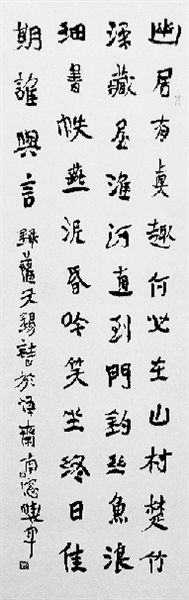 幽居有眞趣何必在山村楚竹
深藏屋淮河直到門釣絲魚浪
細書帙燕泥昏吟笑坐終日佳
期誰與言 錄薩天錫詩於齋南窗